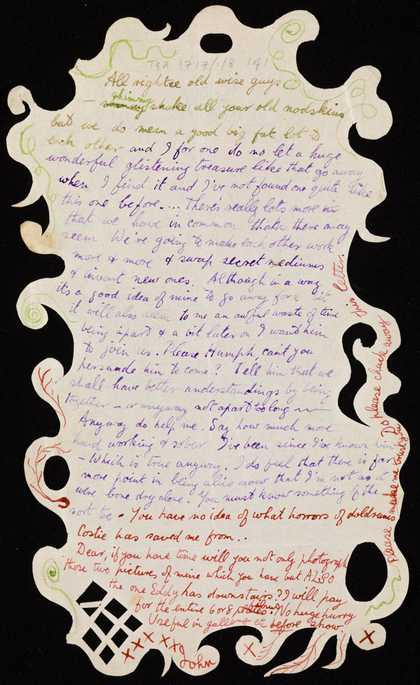 TGA 1717/1/8 191
All rightee old wise guys
- shinny shake all your old nodskins
but we do mean a good big fat lot to
each other and I for one do no let a huge
wonderful glistening treasure like that go away
when I find it and I've not found one quite like
this one before.... There's really lots more in
that we have in common than there may
seem. We're going to make each other work
more & more & swap secret mediums
& invent new ones. Although in a way
its a good idea of mine to go away for a bit
it will also seem to me an awful waste of time
being apart & a bit later on I want him
to join us. Please Humph, can't you
persuade him to come? Tell him that we
shall have better understandings by being
together - or anyway not apart too long
Anyway do help me. Say how much more
hard working & sober I've been since I've known him
- Which is true anyway. I do feel that there is far
more point in being alive now that I'm not as it
were bone dry alone. You must know something of the
sort too. You have no idea of what horrors of doldrums
Costie has saved me from..
Dear, if you have time will you not only photograph
those two pictures of mine which you have but ALSO
the one Eddy has downstairs?? I will pay
for the entire 6 or 8. No huge hurry
Useful in before show
xxxxx John x
letter
Please do please chuck away